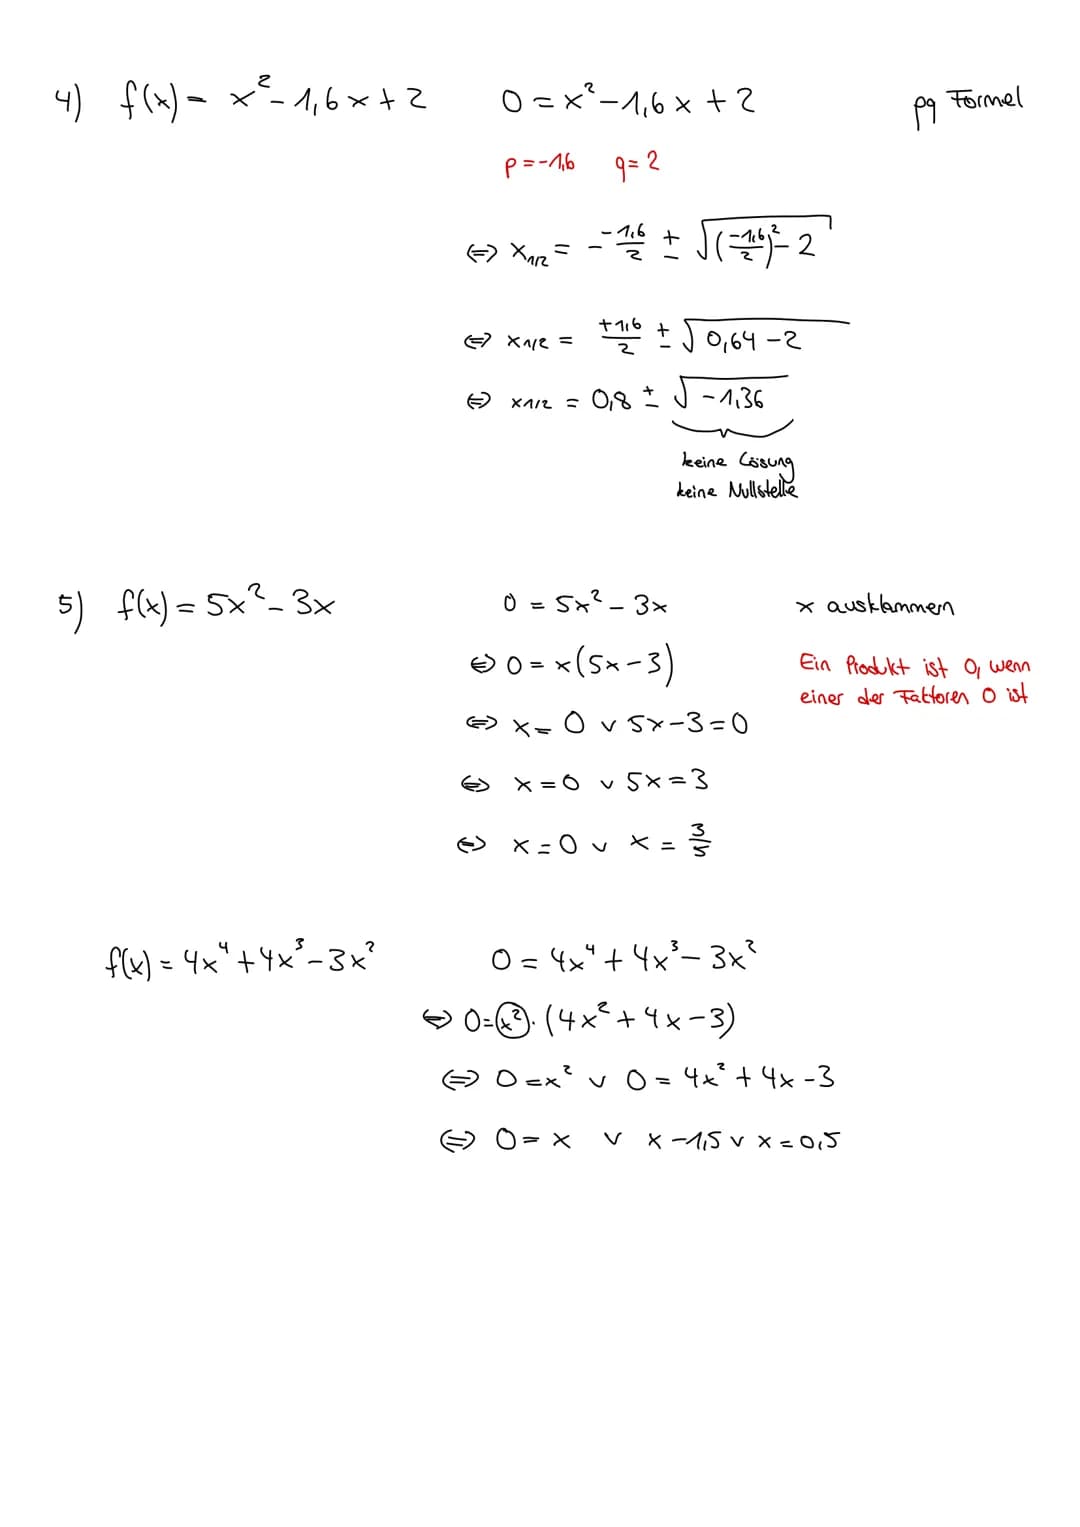 4) f(x) = x² - 1,6x + 2 0 = x² - 1,6x + 2 pq Formel
p = -1,6 q = 2
⇔ x₁/₂ = - -1,6/2 ± √((-1,6/2)² - 2)
⇔ x₁/₂ = +1,6/2 ± √(0,64 - 2)
⇔ x₁/₂ = 0,8 ± √(-1,36)
keine Lösung
keine Nullstelle
5) f(x) = 5x² - 3x 0 = 5x² - 3x x ausklammern
⇔ 0 = x(5x - 3) Ein Produkt ist 0, wenn
einer der Faktoren 0 ist
⇔ x = 0 ∨ 5x - 3 = 0
⇔ x = 0 ∨ 5x = 3
⇔ x = 0 ∨ x = 3/5
f(x) = 4x⁴ + 4x³ - 3x² 0 = 4x⁴ + 4x³ - 3x²
⇔ 0 = x² · (4x² + 4x - 3)
⇔ 0 = x² ∨ 0 = 4x² + 4x - 3
⇔ 0 = x ∨ x -1,5 ∨ x = 0,5